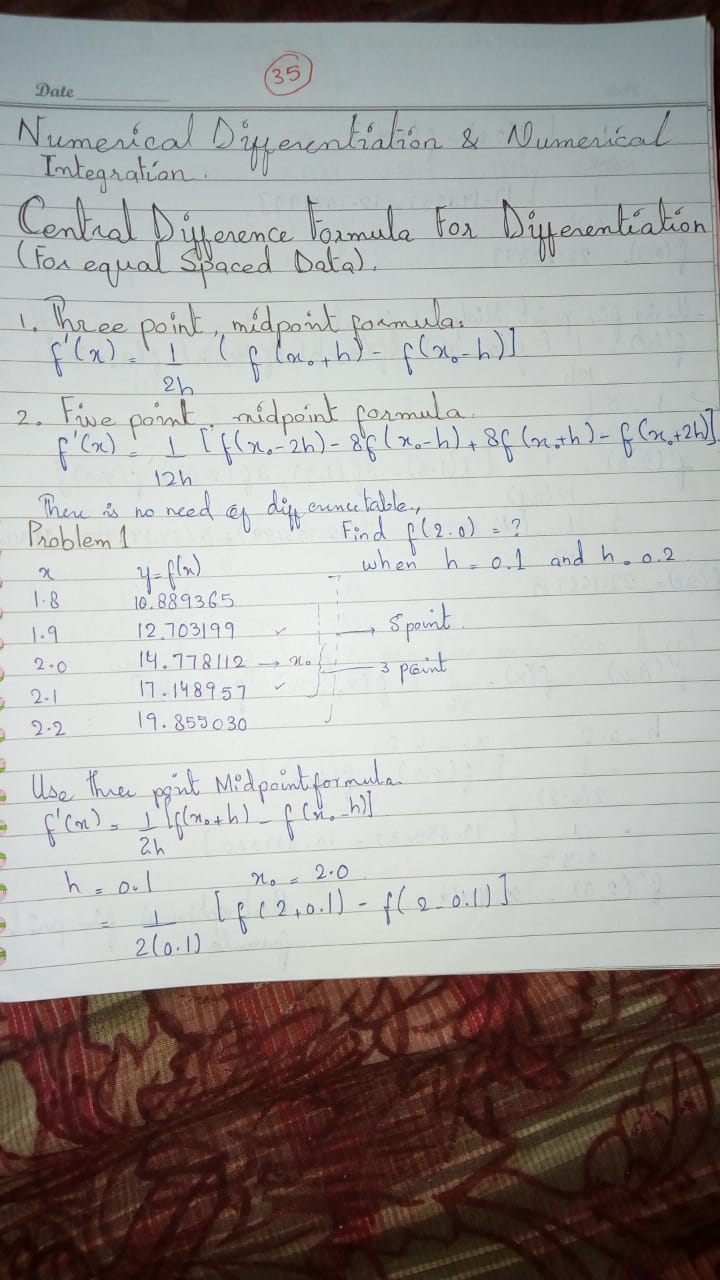 35
Date
Numerical Differentiation & Numerical
Integration.
Central Difference Formula For Differentiation
(For equal Spaced Data).
1. Three point, midpoint formula:
f'(x) = 1/2h ( f(x₀+h) - f(x₀-h)]
2. Five point, midpoint formula.
f'(x) = 1/12h [f(x₀-2h) - 8f(x₀-h) + 8f(x₀+h) - f(x₀+2h)]
There is no need of difference table.,
Problem 1 Find f(2.0) = ?
x y=f(x) when h = 0.1 and h = 0.2
1.8 10.889365
1.9 12.703199 ✓ → 5 point.
2.0 14.778112 → x₀ 3 point
2.1 17.148957 ✓
2.2 19.855030
Use three point Midpoint formula.
f'(x) = 1/2h [f(x₀+h) - f(x₀-h)]
h = 0.1 x₀ = 2.0
= 1/2(0.1) [f(2+0.1) - f(2-0.1)]